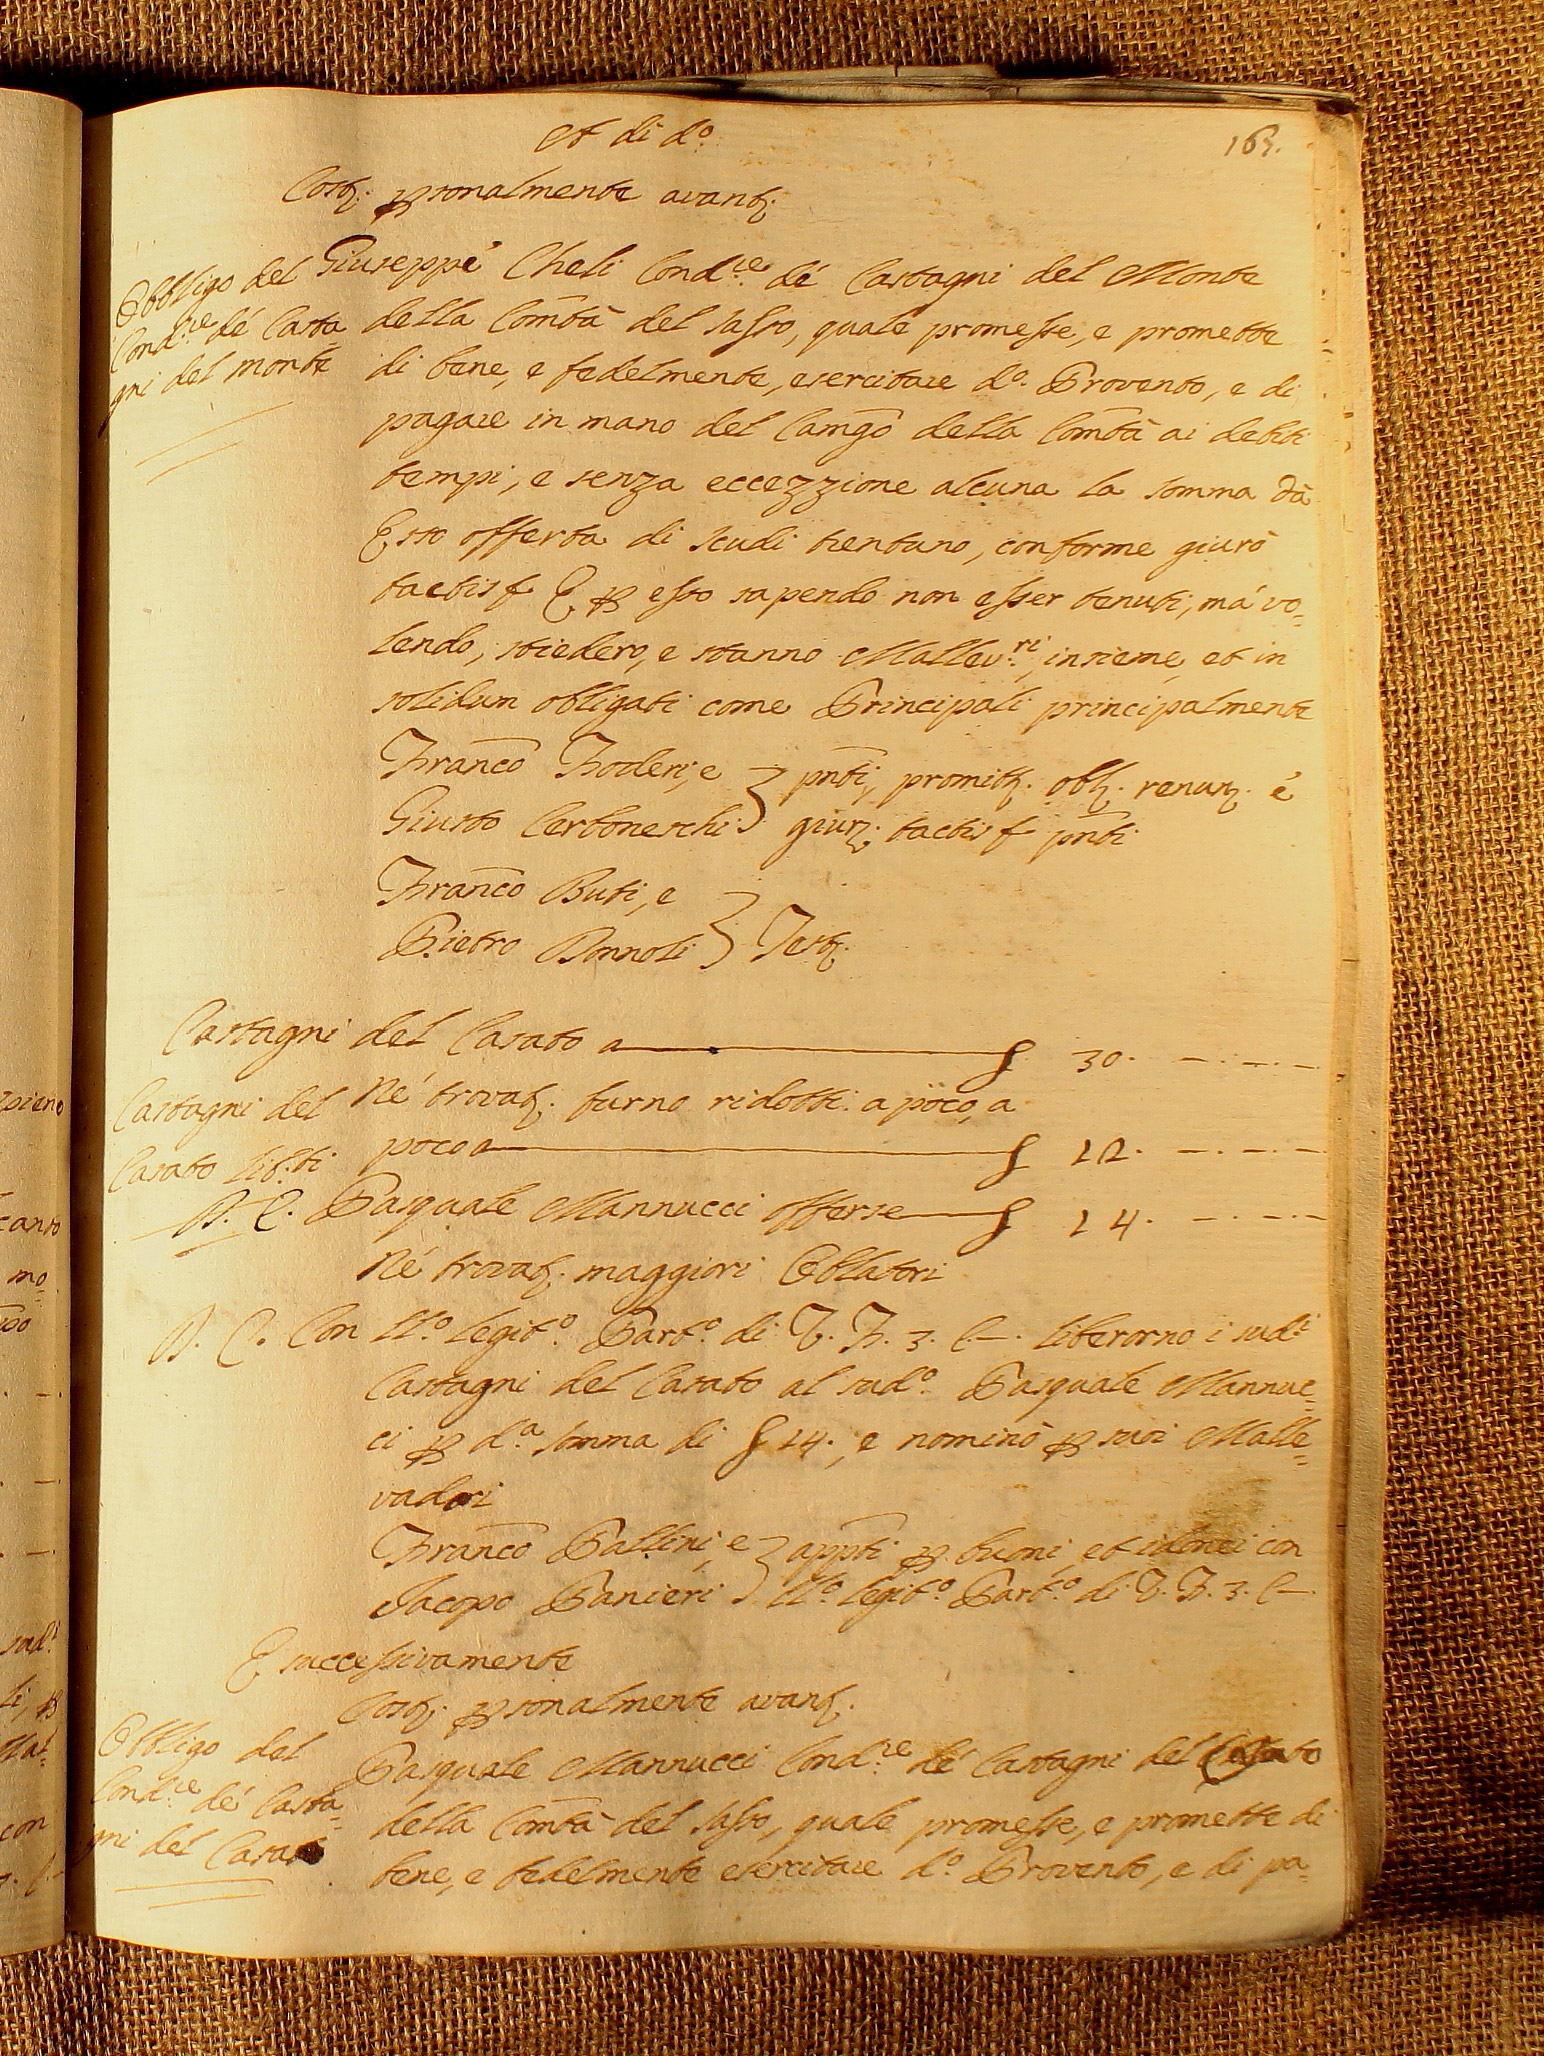 et di d.º
165.
Cost: personalmente avant:
Obbligo del
Cond.re dé Casta
gni del monte
Giuseppé Cheli Cond.re dé Castagni del Monte
della Com̄tà del Sasso, quale promesse, e promette
di bene, e fedelmente, esercitare d.º Provento, e di
pagare in mano del Camḡo della Com̄tà ai debiti
tempi, e senza eccezzione alcuna la somma dà
Esso offerta di scudi trentuno, conforme giurò
tactis E p esso sapendo non esser tenuti, má vo=
lendo, stiedero, e stanno Mallev.ri, insieme, et in
solidum obligati come Principali principalmente
Franc̄o Foderi, e
Giusto Cerboneschi
pn̄ti, promitt: obl: renunz: é
giur: tactis pn̄ti
Franc̄o Buti, e
Pietro Bonnoli
Test:
Castagni del Casato a 30. — . — . —
Castagni del
Casato lib:ti
Né trovat: furno ridotti a poco, a
poco a 12. — . — . —
D. C. Pasquale Mannucci offerse 14. — . — . —
Né trovat: maggiori Oblatori
D. C. Con ll.º legit.º Part.º di V. F. 3. C— . liberorno i sud.i
Castagni del Casato al sud.º Pasquale Mannuc=
ci p d.a somma di 14., e nominò p suoi Malle=
vadori
Franc̄o Pallini, e
Jacopo Panieri
app̄ti p buoni, et idonei con
ll.º legit.º Part.º di V. F. 3. C—.
E successivamente
Cost: personalmente avant:
Obbligo del
Cond.re dé Casta=
gni del Casato
Pasquale Mannucci Cond.re dé Castagni del Casato
della Com̄tà del Sasso, quale promesse, e promette di
bene, e fedelmente esercitare d.º Provento, e di pa=